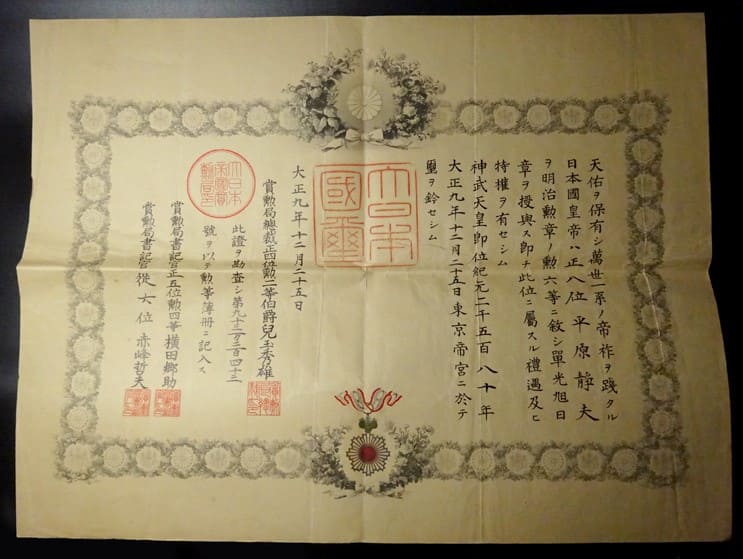 天佑ヲ保有シ萬世一系ノ帝祚ヲ踐タル
日本國皇帝ハ正八位平原靜夫
ヲ明治勲章ノ勲六等ニ敍シ單光旭日
章ヲ授與ス即チ此位ニ屬スル禮遇及ヒ
特權ヲ有セシム
神武天皇即位紀元二千五百八十年
大正九年十二月二十五日東京帝宮ニ於テ
璽ヲ鈐セシム
大日本
國璽
大正九年十二月二十五日
賞勲局總裁正四位勲二等伯爵兒玉秀雄
此證ヲ勘査シ第九十三万二百四十三
號ヲ以テ勲等簿册ニ記入ス
賞勲局書記官正五位勲四等横田郷助
賞勲局書記官從六位赤峰哲夫